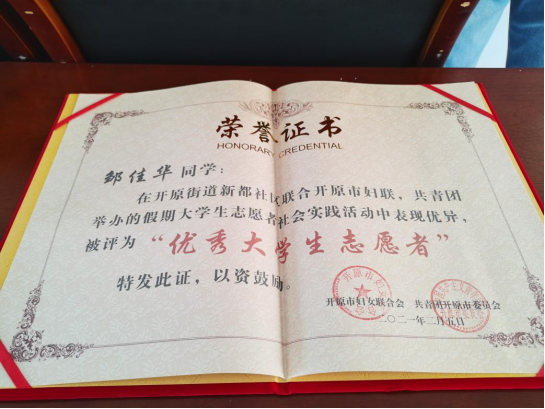 荣誉证书
HONORARY CREDENTIAL
邹佳华 同学：
在开原街道新都社区联合开原市妇联，共青团
举办的假期大学生志愿者社会实践活动中表现优异，
被评为“优秀大学生志愿者”
特发此证，以资鼓励。
开原市妇女联合会 共青团开原市委员会
二〇二一年二月五日